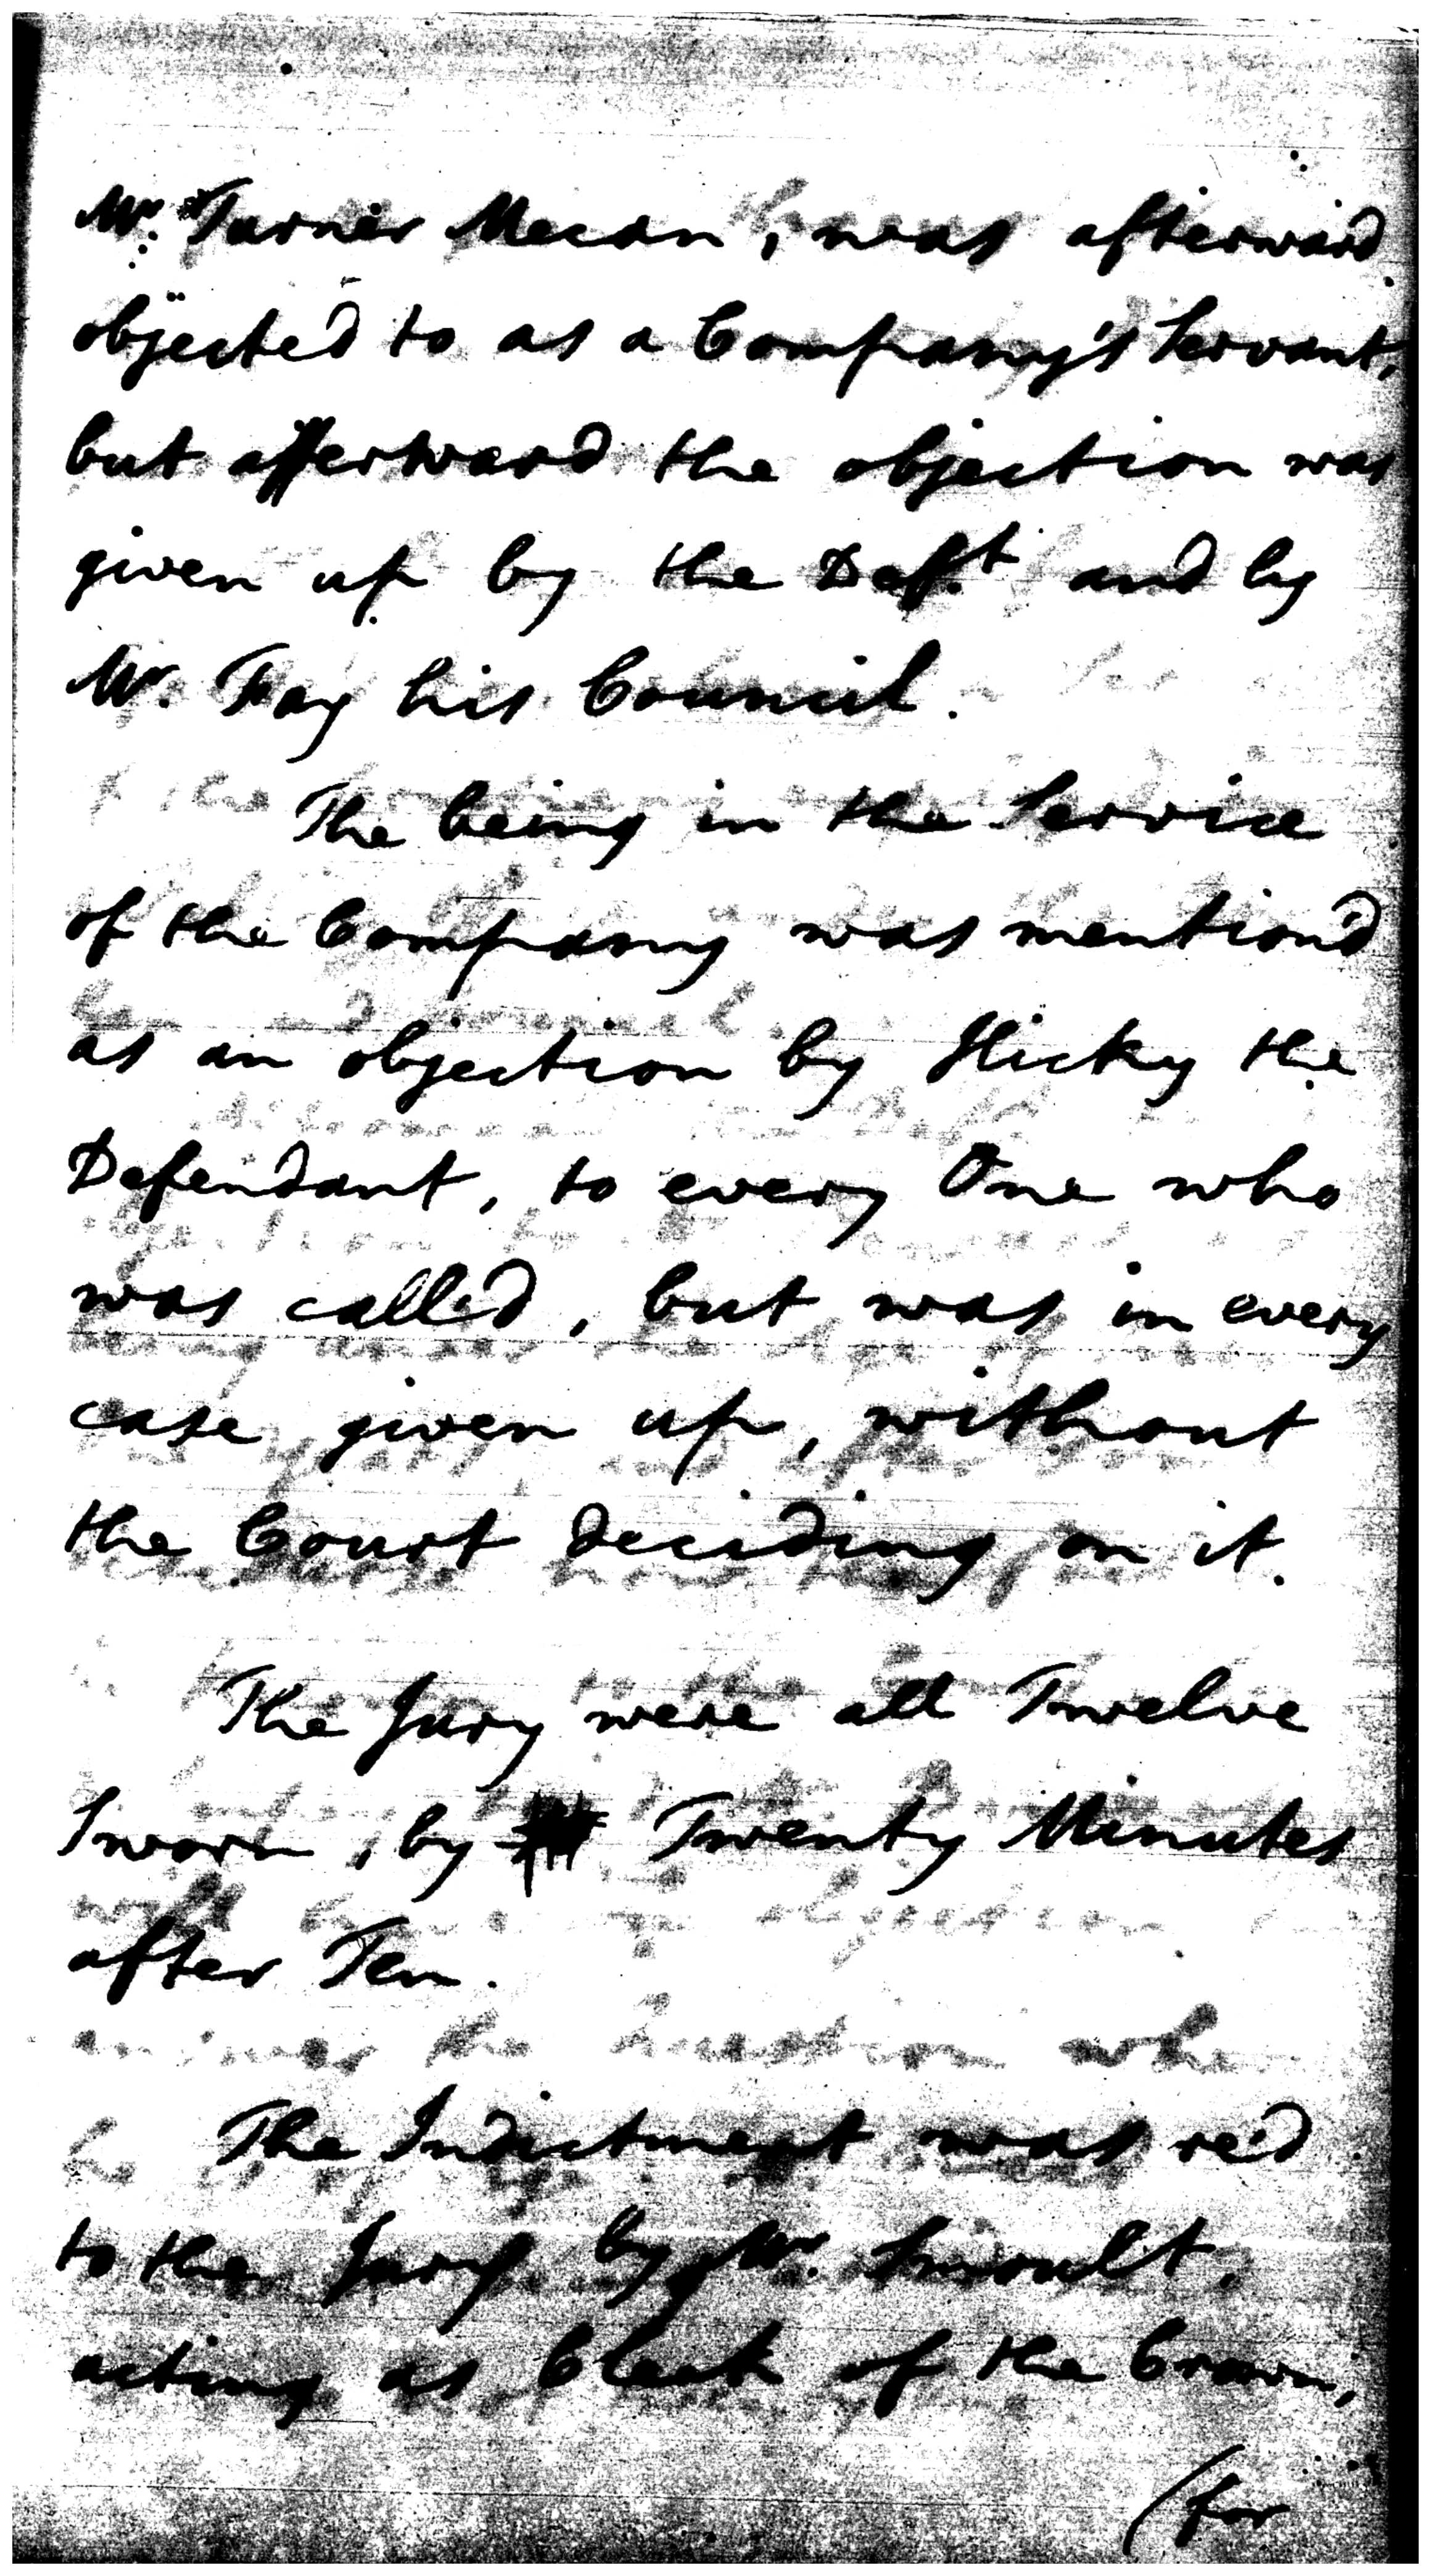 Mr. Turner Macan, was afterward
objected to as a Company's Servant,
but afterward the objection was
given up by the Deft. and by
Mr. Fay his Council.
The being in the Service
of the Company was mention'd
as an objection by Hicky the
Defendant, to every One who
was call'd, but was in every
case given up, without
the Court deciding on it.
The Jury were all Twelve
Sworn, by Twenty Minutes
after Ten.
The Indictment was red
to the Jury by Mr. Smoult,
acting as Clerk of the Crown,
(for